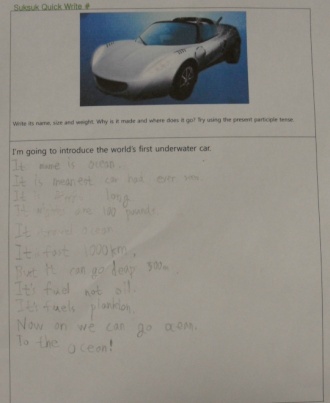 Suksuk Quick Write #
Write its name, size and weight. Why is it made and where does it go? Try using the present participle tense.
I'm going to introduce the world's first underwater car.
It name is ocean.
It is car has ever
It is long
It 100 pounds.
It travel ocean.
It's fast 1000km,
But It can go deep 800m.
It's fuel not oil.
It's fuels plankton.
Now on we can go
To the ocean!